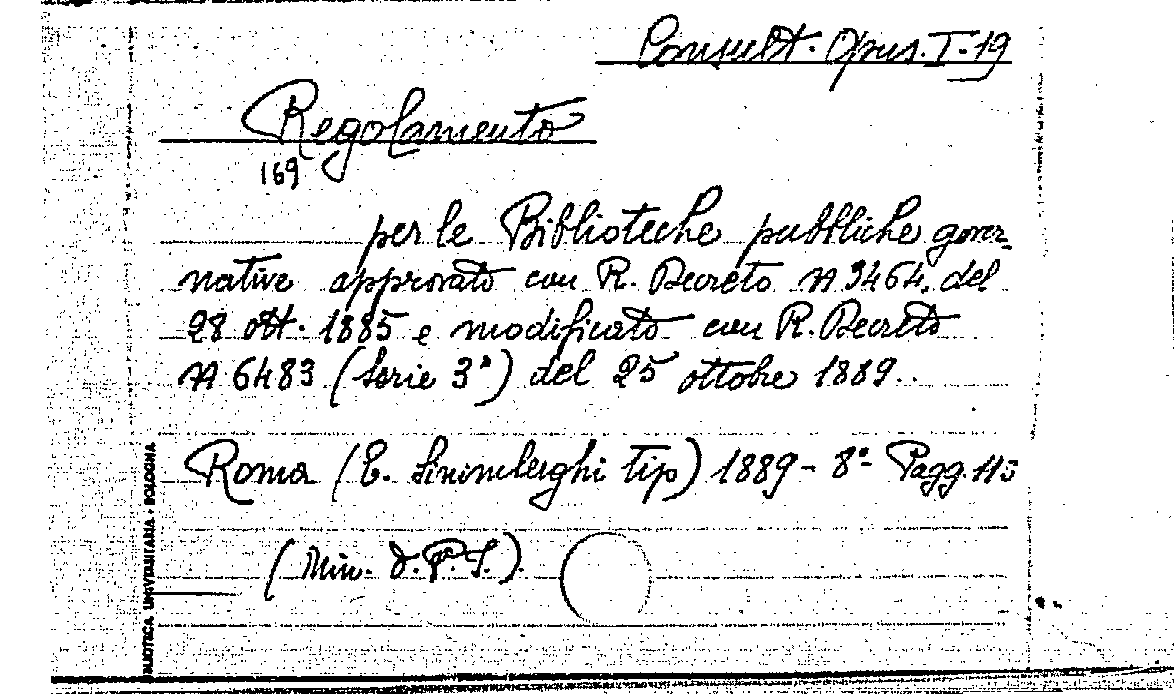 Consult. Opus. I. 19
Regolamento
169
per le Biblioteche pubbliche gover-
native approvato con R. Decreto N 3464. del
28 ott. 1885 e modificato con R. Decreto
N 6483 (serie 3ª) del 25 ottobre 1889.
Roma (E. Sinimberghi tip) 1889 - 8º - Pagg. 115
(Min. d. P. I.).
BIBLIOTECA UNIVERSITARIA - BOLOGNA